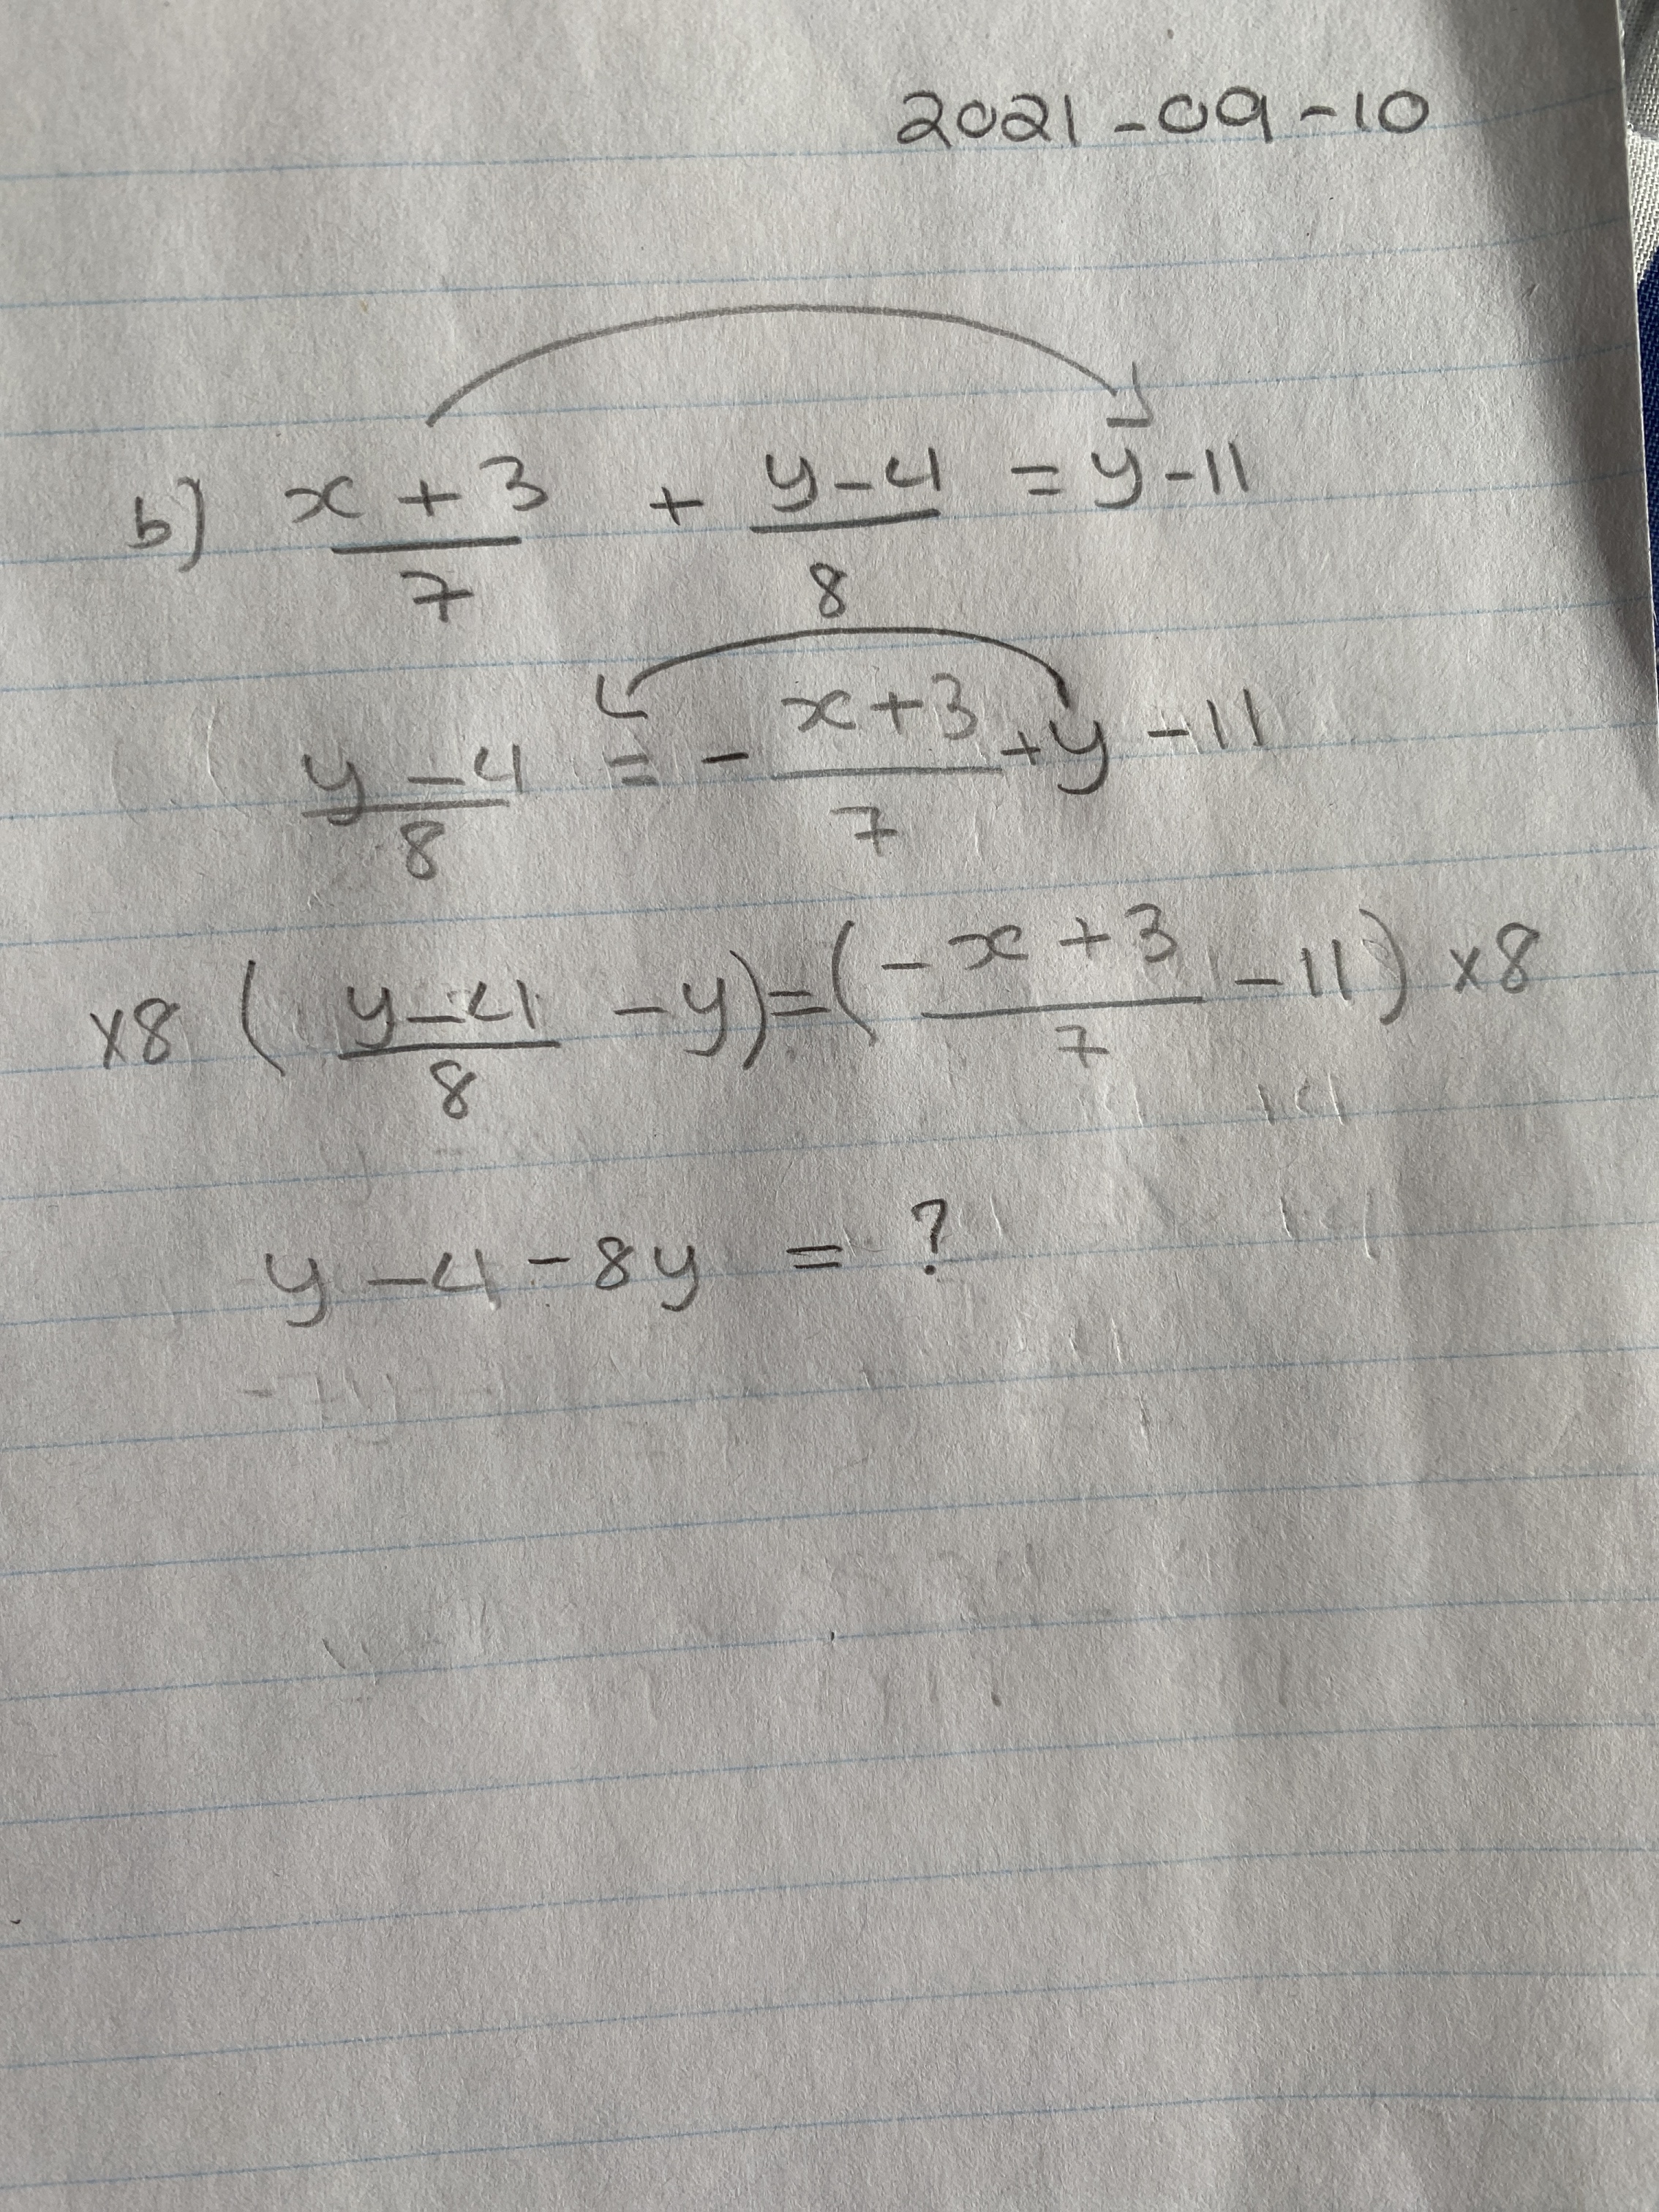 2021-09-10
b) x + 3/7 + y-4/8 = y-11
y-4/8 = - x+3/7 +y -11
x8 ( y-4/8 - y)=(-x+3/7 -11) x8
y-4-8y = ?